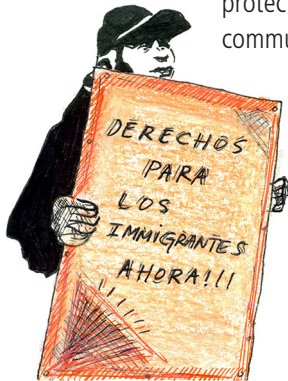 protec
commu
DERECHOS
PARA
LOS
IMMIGRANTES
AHORA!!!